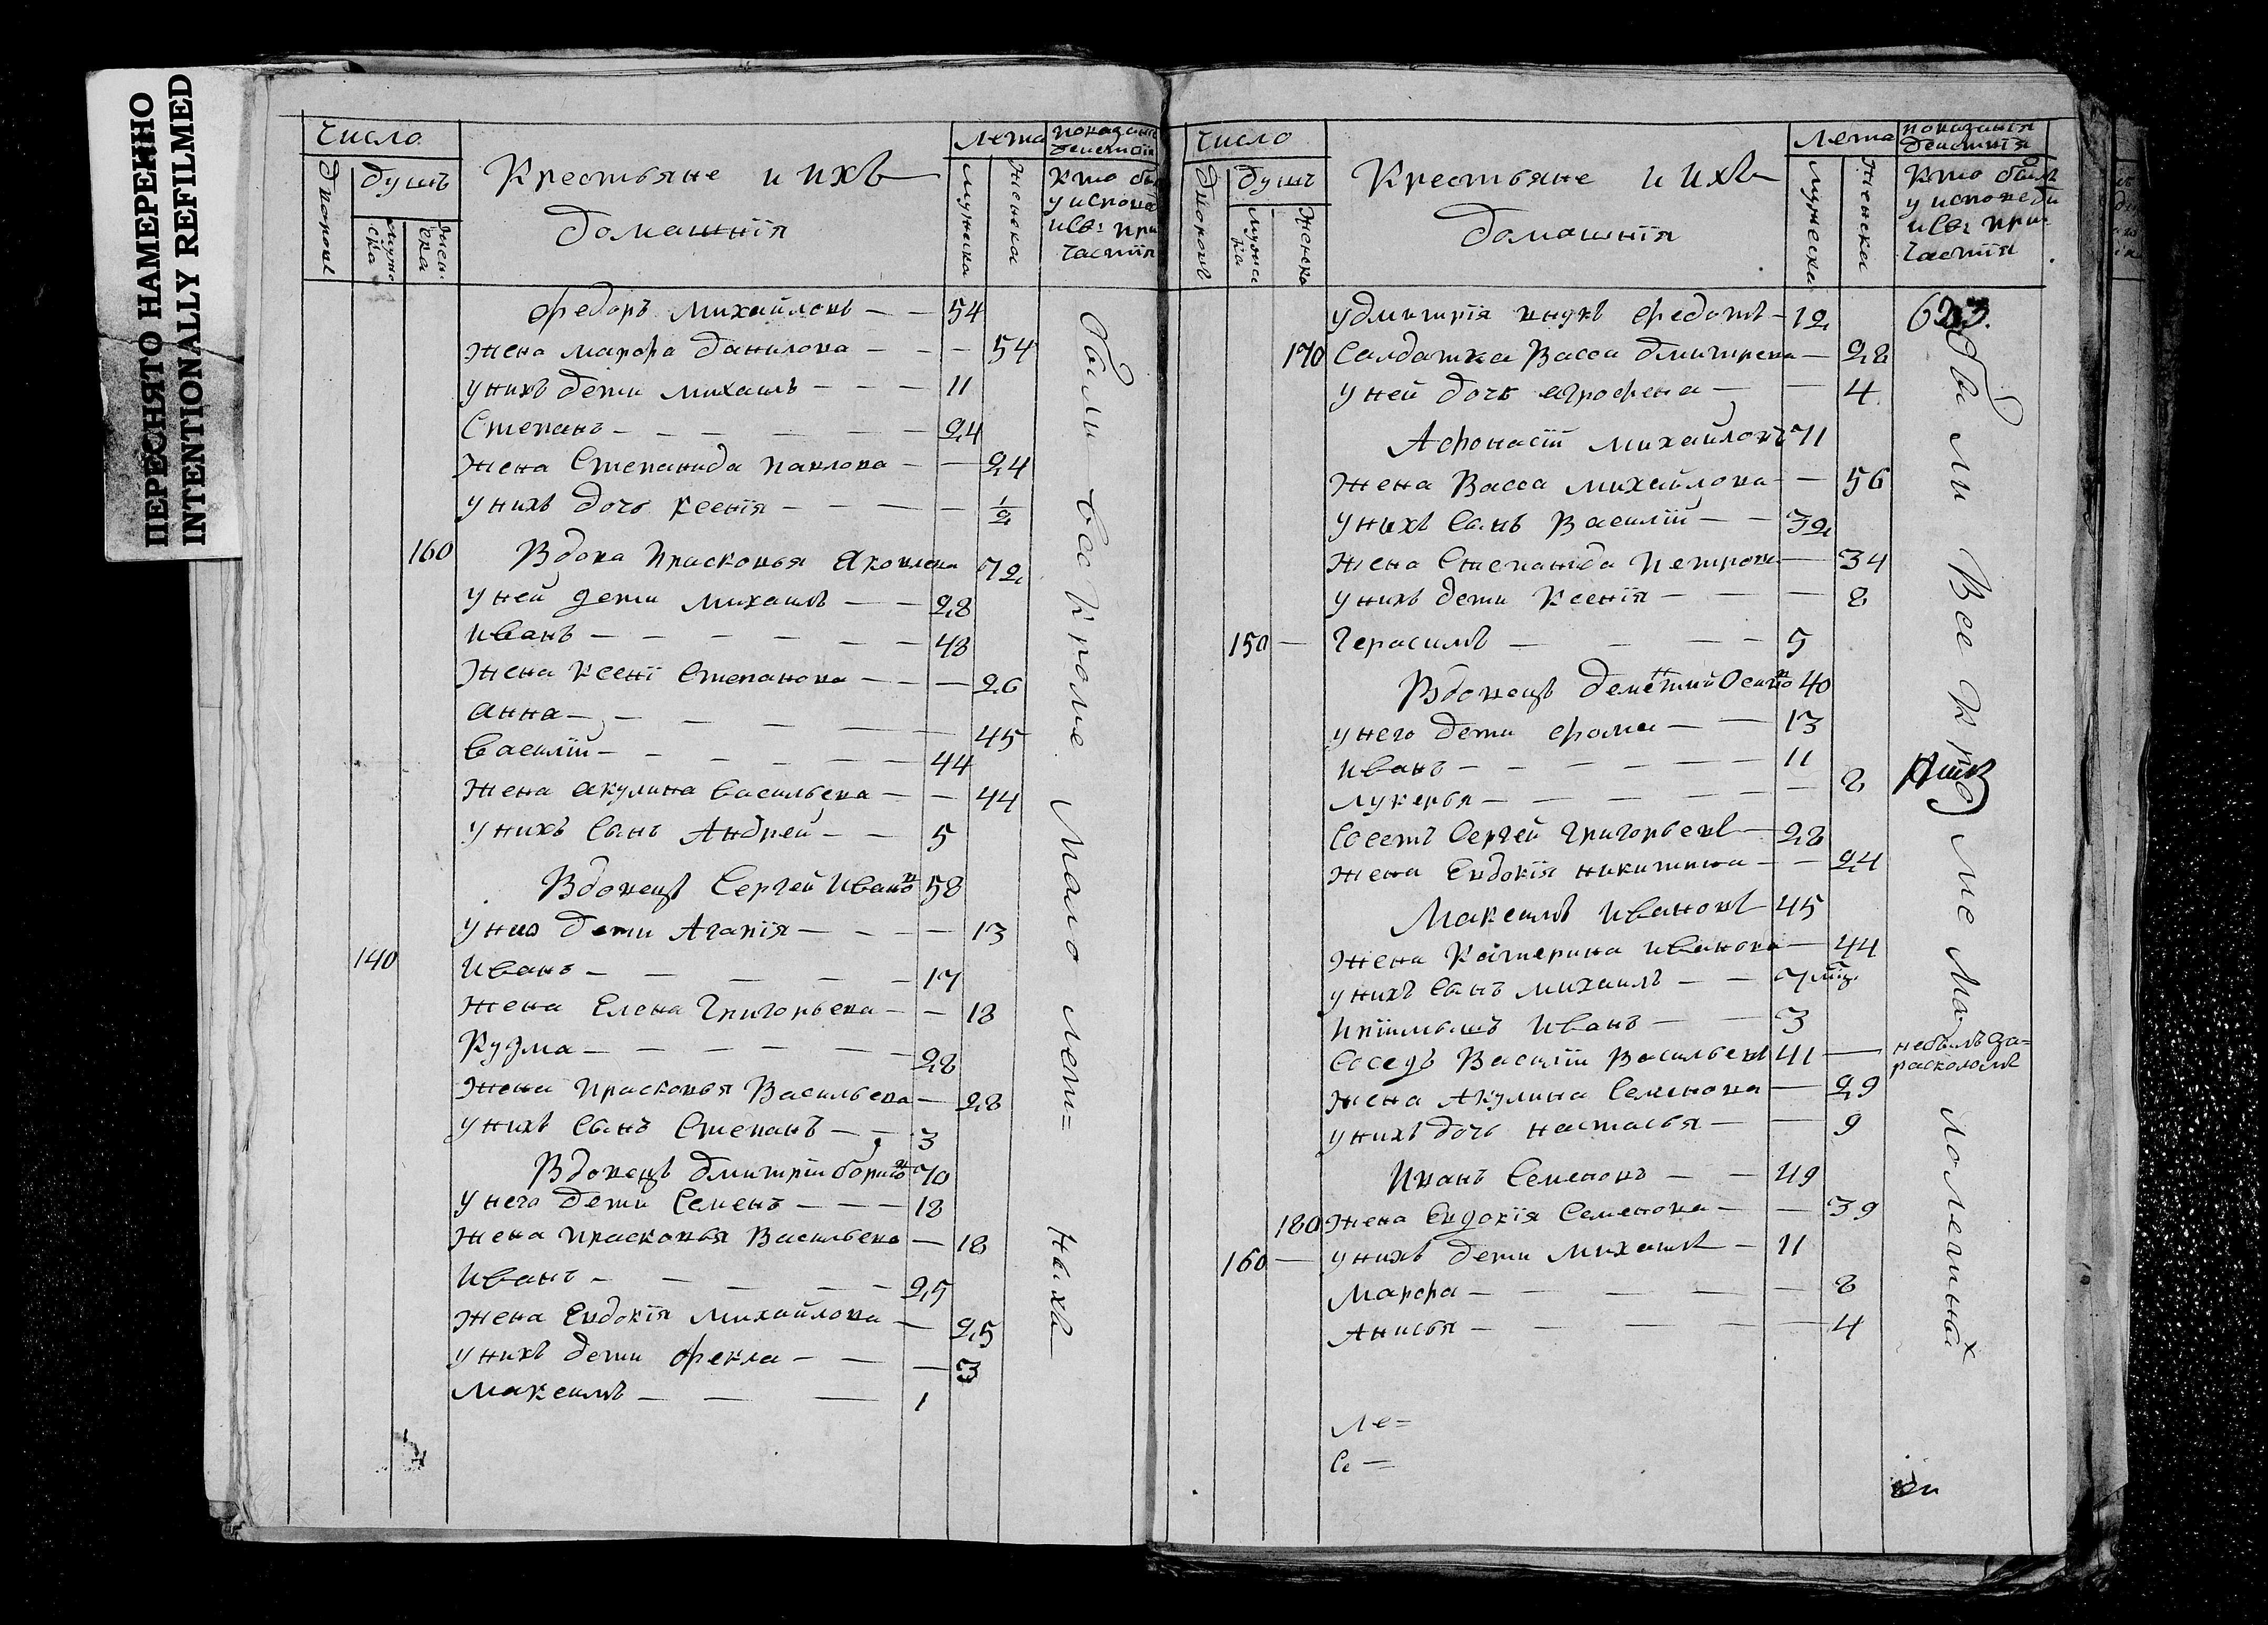 ПЕРЕСНЯТО НАМЕРЕННО
INTENTIONALLY REFILMED
Число
дворовъ
душъ
мужеска
женска
Крестьяне и ихъ
домашнія
лета
мужеска
женска
показаніе
Кто бы
у испове
и св: при
частія
Федоръ Михайловъ — — 54
Жена Марфа Данилова — — — 54
у нихъ дети Михаилъ — — — 11
Степанъ — — — — — — 24
Жена Степанида Павлова — — 24
у нихъ дочь Ксенія — — — — 1/2
160 Вдова Прасковья Яковлева 72
у ней дети Михаилъ — — 28
Иванъ — — — — — — 48
Жена Ксенї Степанова — — — 26
Анна — — — — — — 45
Василїй — — — — — — 44
Жена Акулина Васильева — — 44
у нихъ сынъ Андрей — — 5
Вдовецъ Сергей Ивано в 58
у них дети Агапія — — — — 13
140 Иванъ — — — — — 17
Жена Елена Григорьева — — 18
Кузма — — — — — — 28
Жена Прасковья Васильева — 28
у нихъ сынъ Степанъ — — 3
Вдовецъ Дмитрїй Борисо 70
у него дети Семенъ — — — 18
Жена Прасковья Васильева — 18
Иванъ — — — — — 25
Жена Евдокїя Михайлова — 25
у нихъ дети Фекла — — — 3
Максимъ — — — 1
были все кроме мало лет=
ныхъ
Число
дворовъ
душъ
мужеска
женска
Крестьяне и ихъ
домашнїя
лета
мужеска
женска
показанїя
Кто былъ
у исповеди
и св: при
частїя
у Дмитрїя внукъ Федотъ — 12
623.
170 Салдатка Васса Дмитрева — 28
у ней дочь Агрофена — — 4
Афонасїй Михайловъ 71
Жена Васса Михайлова — — 56
у нихъ сынъ Василїй — — 32
Жена Степанида Петрова — 34
у нихъ дети Ксенїя — — — 8
150 — Герасимъ — — — — 5
Вдовецъ Осипо 40
у него дети Фома — — 13
Иванъ — — — — — — 11
Лукерья — — — — — — 8
Соседъ Сергей Григорьевъ — 28
Жена Евдокїя Никитина — — 24
Максимъ Ивановъ 45
Жена Катерина Иванова — 44
у нихъ сынъ Михаилъ — — 7 мц.
Прїимышъ Иванъ — — 3
Соседъ Василїй Васильевъ 41 — небылъ за=
расколомъ
Жена Акулина Семенова — 29
у нихъ дочь Настасья — — 9
Иванъ Семеновъ — — 49
180 Жена Евдокїя Семенова — — 39
160 — у нихъ дети Михаилъ — 11
Марфа — — — — — 8
Анисья — — — — — 4
были все кроме малолетных
ле=
се —